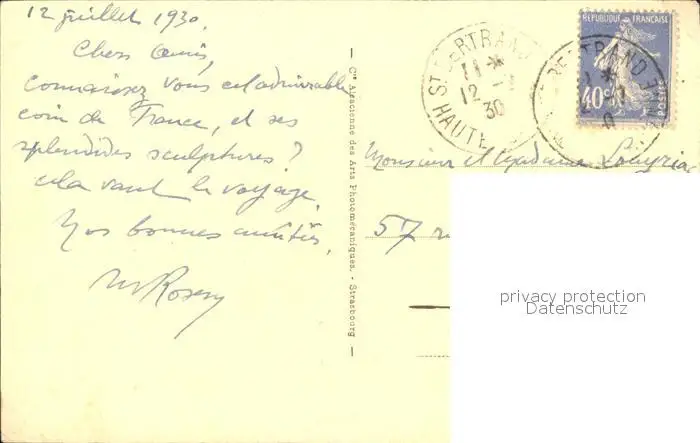 12 juillet 1930.
Chers amis,
connaissez vous cet admirable
coin de France, et ses
splendides sculptures ?
cela vaut le voyage.
Nos bonnes amitiés,
Cie Alsacienne des Arts Photomécaniques. - Strasbourg
RÉPUBLIQUE FRANÇAISE
40c
POSTES
ST BERTRAND
11 *
12 -
30
HAUTE
BERTRAND
Monsieur et Madame
57
privacy protection
Datenschutz